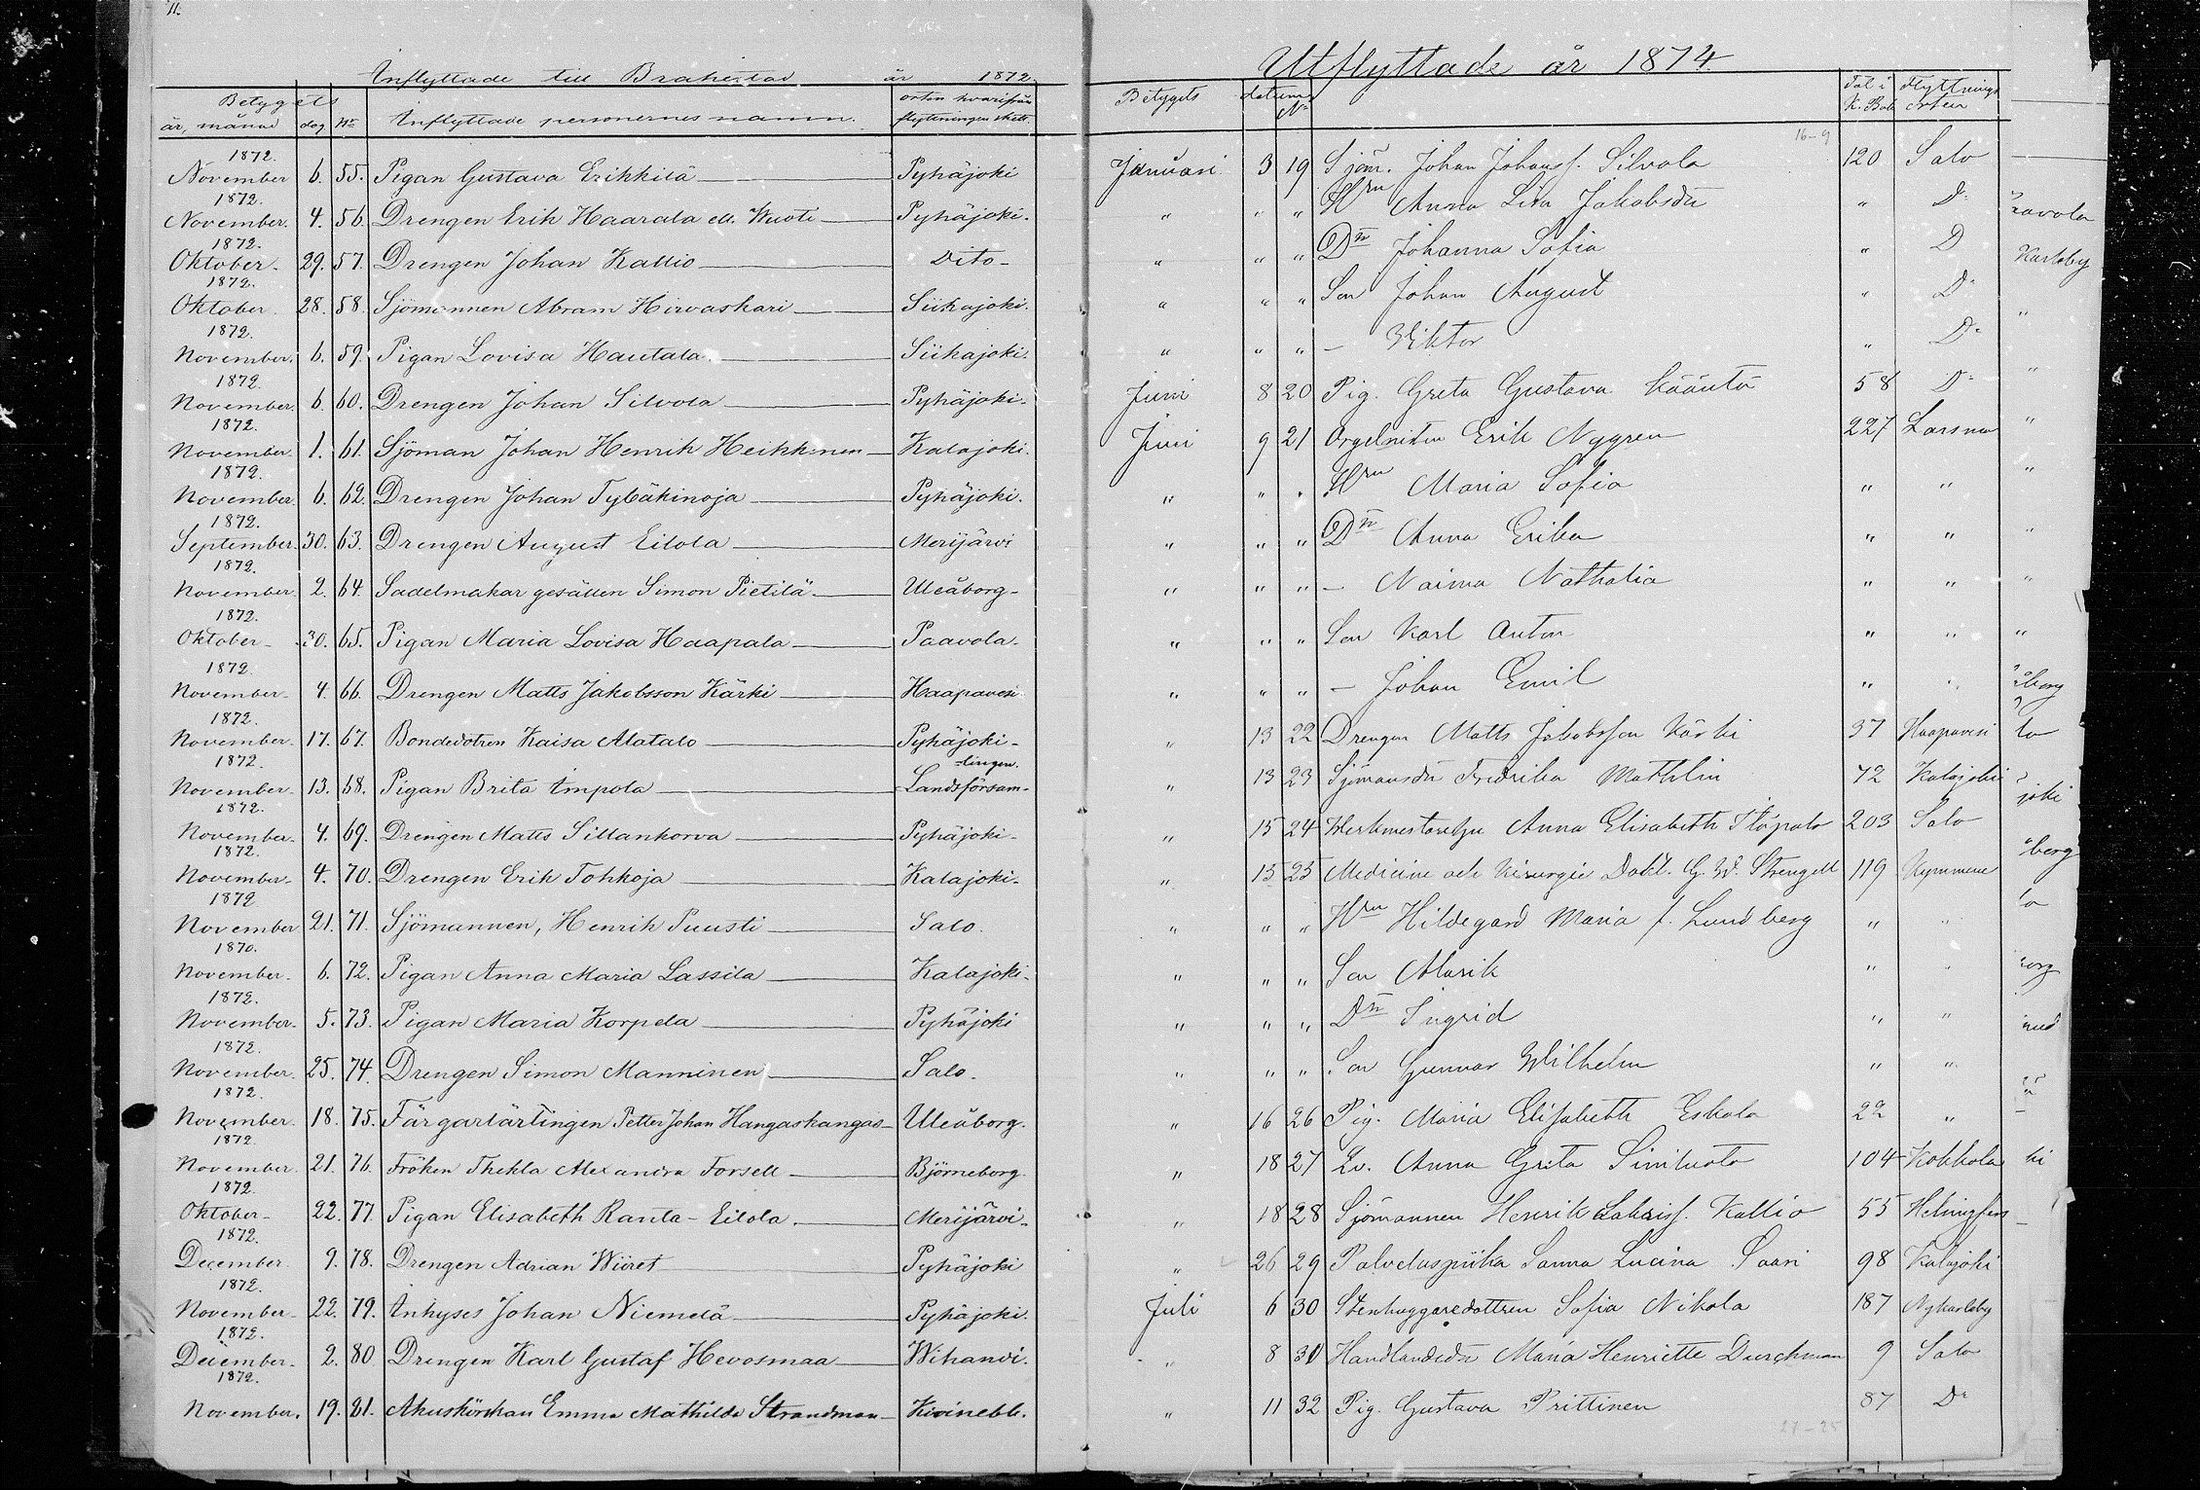 11.
Inflyttade till Brahestad år 1872.
Betygets
år, månad dag No Inflyttade personernes namn. orten hvarifrån flyttningen skett.
1872.
November 6. 55. Pigan Gustava Erikkilä Pyhäjoki
1872.
November. 4. 56. Drengen Erik Haarala ell. Wuoti Pyhäjoki.
1872.
Oktober 29. 57. Drengen Johan Kallio Dito
1872.
Oktober. 28. 58. Sjömannen Abram Hirvaskari Siikajoki.
1872.
November. 6. 59. Pigan Lovisa Hautala Siikajoki.
1872.
November. 6. 60. Drengen Johan Silvola Pyhäjoki.
1872.
November. 1. 61. Sjöman Johan Henrik Heikkinen Kalajoki.
1872.
November 6. 62. Drengen Johan Pyhäjoki.
1872.
September. 30. 63. Drengen August Eilola Merijärvi
1872.
November 2. 64. Sadelmakar gesällen Simon Pietilä Uleåborg
1872.
Oktober 30. 65. Pigan Maria Lovisa Haapala Paavola
1872.
November 4. 66. Drengen Matts Jakobsson Kärki Haapavesi
1872.
November 17. 67. Bondedotren Kaisa Alatalo Pyhäjoki
1872. -lingen.
November 13. 68. Pigan Brita Impola Landsförsam-
1872.
November. 4. 69. Drengen Matts Sillankorva Pyhäjoki
1872.
November 4. 70. Drengen Erik Tohkoja Kalajoki
1872
November 21. 71. Sjömannen, Henrik Puusti Salo.
1870.
November 6. 72. Pigan Anna Maria Lassila Kalajoki
1872.
November. 5. 73. Pigan Maria Korpela Pyhäjoki
1872.
November. 25. 74. Drengen Simon Manninen Salo.
1872.
November. 18. 75. Färgarlärlingen Petter Johan Hangaskangas Uleåborg.
1872.
November. 21. 76. Fröken Thekla Alexandra Forsell Björneborg
1872.
Oktober 22. 77. Pigan Elisabeth Ranta-Eilola Merijärvi
1872.
December. 9. 78. Drengen Adrian Wiiret Pyhäjoki
1872.
November 22. 79. Inhyses Johan Niemelä Pyhäjoki.
1872.
December 2. 80. Drengen Karl Gustaf Hevosmaa Wihanti.
1872.
November. 19. 81. Akuskörskan Emma Mathilda Strandman Kivinebb.
Utflyttade år 1874
Betygets datum No Tal i K. Bok Flyttnings orten
16-9
Januari 3 19 Sjöm. Johan Johanss. Silvola 120 Salo
" " " Hru Anna Lisa Jakobsdr " Do
" " " Dn Johanna Sofia " D
" " " Son Johan August " Do
" " " – Viktor " Do
Juni 8 20 Pig. Greta Gustava Kääntä 58 Do
Juni 9 21 Erik Nygren 227 Larsmo
" " " Hru Maria Sofia " "
" " " Dn Anna Erika " "
" " " – Naima Nathalia " "
" " " Son Karl Anton " "
" " " – Johan Emil " "
" 13 22 Drengen Matts Jakobsson Kärki 37 Haapavesi
" 13 23 Sjömansdr Fredrika Mathlin 72 Kalajoki
" 15 24 Anna Elisabeth 203 Salo
" 15 25 Medicine och Kirurgie Dokt. G. W. Strengell 119 Kymmene
" " " Hru Hildegard Maria f. Lundberg " "
" " " Son Alarik " "
" " " Dn Ingrid " "
" " " Son Gunnar Wilhelm " "
" 16 26 Pig. Maria Elisabeth Eskola 22 "
" 18 27 Anna Greta Siniluoto 104 Kokkola
" 18 28 Sjömannen Henrik Kallio 55 Helsingfors
" 26 29 Palveluspiika Sanna Lucina Saari 98 Kalajoki
Juli 6 30 Stenhuggaredottren Sofia Nikola 187 Nykarleby
" 8 31 Handlandedr Maria Henriette Durchman 9 Salo
" 11 32 Pig. Gustava Prittinen 87 Do
avola
Karleby
"
"
"
"
"
"
"
åborg
lo
joki
berg
lo
org
ki